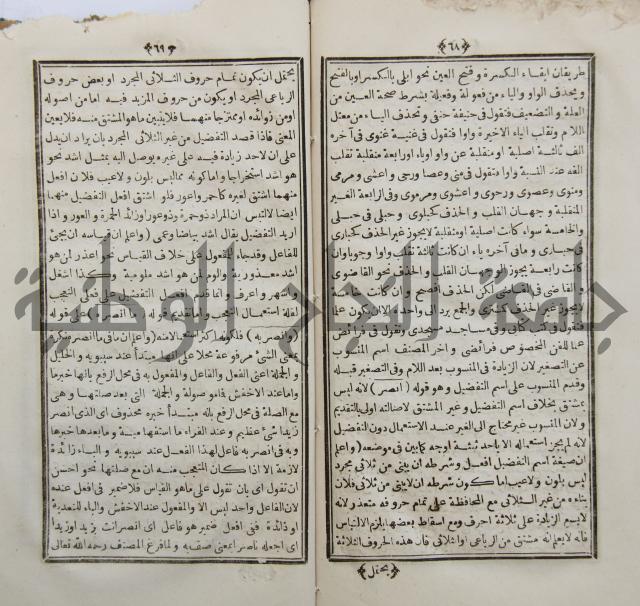 ﴿٦٨﴾
طريقان ابقاء الكسرة وفتح العين نحو ابلى بالكسر او بالفتح
ويحذف الواو والياء من فعولة وفعيلة بشرط صحة العين من
العلة والتضعيف فتقول فى حنيفة حنفى وتحذف الياء من معتل
اللام وتقلب الياء الاخيرة واوا فتقول فى غنية غنوى فى آخره
الف ثالثة اصلية او منقلبة عن واو اوياء او رابعة منقلبة تقلب
الفه عند النسبة واوا وتقول فى متى وعصا ورحى واعشى ومرمى
ومتوى وعصوى ورحوى واعشوى ومرموى وفى الرابعة الغير
المنقلبة وجهان القلب والحذف كحبلوى وحبلى فى حبلى
والخامسة سواء كانت اصلية او منقلبة لا يجوز غير الحذف كحبارى
فى حبارى وما فى آخره ياء ان كانت ثالثة تقلب واوا وجوبا وان
كانت رابعة يجوز الوجهان القلب والحذف نحو القاضوى
والقاضى فى القاضى لكن الحذف افصح وان كانت خامسة
لا يجوز غير الحذف كمشترى والجمع يرد الى واحده الا ان يكون علما
فتقول فى كتب كتابى وفى مساجد مسجدى وتقول فى فرائض
علما للفن المخصوص فرائضى واخر المصنف اسم المنسوب
عن التصغير لان الزيادة فى المنسوب بعد اللام وفى التصغير قبله
وقدم المنسوب على اسم التفضيل وهو قوله (انصر) لانه ليس
بمشتق بخلاف اسم التفضيل وغير المشتق لاصالته اولى بالتقديم
ولان المنسوب غير محتاج الى الغير عند الاستعمال دون التفضيل
لانه لم يجز استعماله الا باحد ثلثة اوجه كما بين فى موضعه (واعلم
ان صيغة اسم التفضيل افعل وشرطه ان يبنى من ثلاثى مجرد
ليس بلون ولا عيب اما كون شرطه ان لا يبنى من ثلاثى فلان
بناءه من غير الثلاثى مع المحافظة على تمام حروفه متعذر لانه
لا يسع الزيادة على ثلاثة احرف ومع اسقاط بعضها يلزم الالتباس
فانه لا يعلم انه مشتق من الرباعى او الثلاثى فان هذه الحروف الثلاثة
﴿يحتمل﴾
﴿٦٩﴾
يحتمل ان يكون تمام حروف الثلاثى المجرد او بعض حروف
الرباعى المجرد او يكون من حروف المزيد فيه اما من اصوله
او من زوائده او ممتزجا منهما فلا يتبين ما هو المشتق منه فلا يتعين
المعنى فاذا قصد التفضيل من غير الثلاثى المجرد بان يراد ان يدل
على ان لاحد زيادة فيه على غيره يوصل اليه بمثل اشد نحو
هو اشد استخراجا واما كونه مما ليس بلون ولا عيب فلان افعل
منهما اشتق لغيره كاحمر واعور فلو اشتق افعل التفضيل منهما
ايضا لالتبس ان المراد ذو حمرة وذو عور او زائد الحمرة والعور واذا
اريد التفضيل يقال اشد بياضا وعمى (واعلم ان قياسه ان يجئ
للفاعل وقد جاء للمفعول على خلاف القياس نحو اعذر لمن هو
اشد معذورية والوم لمن هو اشد ملومية وكذا اشغل
واشهر واعرف وانما قدم افعل التفضيل على فعلى التعجب
لقلة استعمال التعجب واما تقديم قوله (ما انصره) على قوله
(وانصر به) فلكونه اكثر استعمالا منه (واعلم ان ما فى ما انصر نكرة
بمعنى الشئ مرفوعة محلا على انها مبتدأ عند سيبويه والخليل
والجملة اعنى الفعل والفاعل والمفعول به فى محل الرفع بانها خبر ما
واما عند الاخفش فما موصولة والجملة التى بعد صلتها وهى
مع الصلة فى محل الرفع بانه مبتدأ خبره محذوف اى الذى انصر
زيدا شئ عظيم وعند الفراء ما استفهامية وما بعدها خبرها
وبه فى انصر به فاعل لهذا الفعل عند سيبويه والباء زائدة
لازمة الا اذا كان المتعجب منه ان مع صلتها نحو احسن
ان تقول اى بان تقول على ما هو القياس فلا ضمير فى افعل عنده
لان الفاعل واحد ليس الا والمفعول عند الاخفش والباء للتعدية
او زائدة ففى افعل ضمير هو فاعل اى انصر انت بزيد او زيدا
اى اجعله ناصرا بمعنى صفه به ولما فرغ المصنف رحمه الله تعالى
جامعة النجاح الوطنية